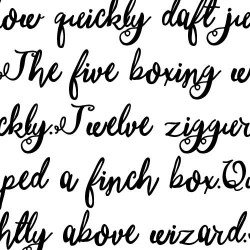 how quickly daft ju
. The five boxing w
ckly. Twelve ziggur
ped a finch box. Qu
ghtly above wizard.